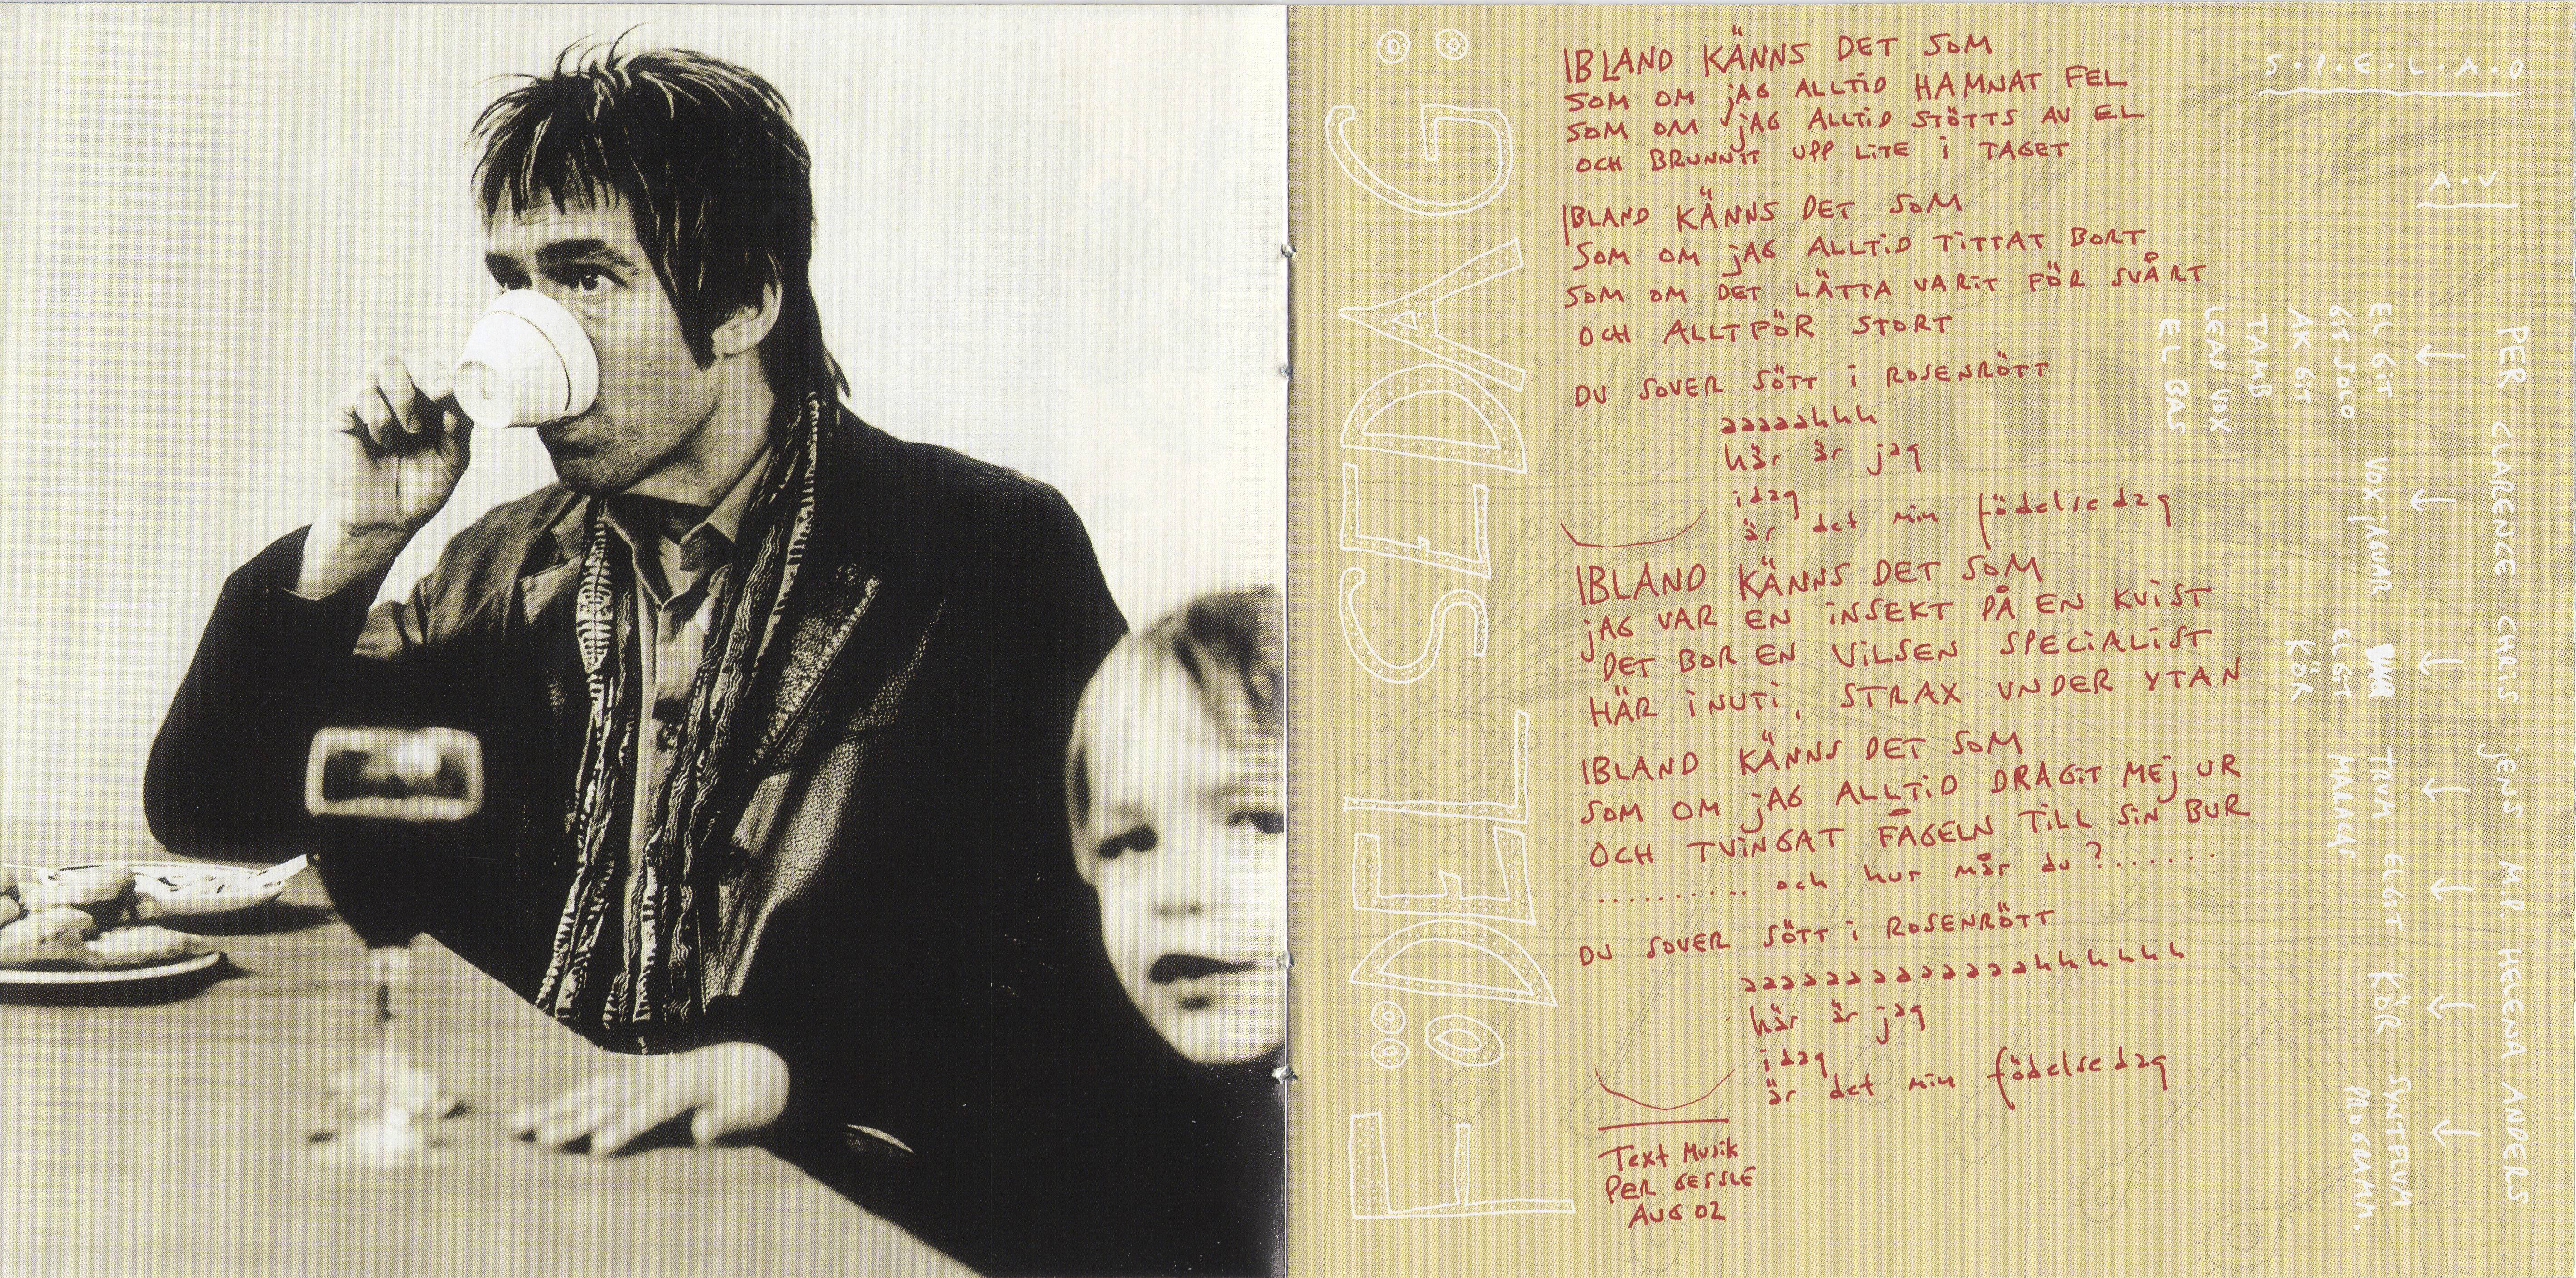 FÖDELSEDAG:
IBLAND KÄNNS DET SOM
SOM OM jAG ALLTiD HAMNAT FEL
SOM OM jAG ALLTiD STÖTTS AV EL
OCH BRUNNiT UPP LiTE i TAGET
IBLAND KÄNNS DET SOM
SOM OM jAG ALLTiD TiTTAT BORT
SOM OM DET LÄTTA VARiT FÖR SVÅRT
OCH ALLTFÖR STORT
DU SOVER SÖTT i ROSENRÖTT
aaaaahhh
här är jag
idag
är det min födelsedag
IBLAND KÄNNS DET SOM
jAG VAR EN iNSEKT PÅ EN KViST
DET BOR EN ViLSEN SPECiALiST
HÄR iNUTi, STRAX UNDER YTAN
IBLAND KÄNNS DET SOM
SOM OM jAG ALLTiD DRAGiT MEj UR
OCH TViNGAT FÅGELN TiLL SiN BUR
........... och hur mår du?......
DU SOVER SÖTT i ROSENRÖTT
aaaaaaaaaaaaahhhhhh
här är jag
idag
är det min födelsedag
Text Musik
PER GESSLE
AUG 02
S.P.E.L.A.D
A.V
PER CLARENCE CHRiS jENS M.P. HELENA ANDERS
EL GiT
GiT SOLO
AK GiT
TAMB
LEAD VOX
EL BAS
VOX jAGUAR
ELGiT
KÖR
TRUM
MARACAS
ELGiT
KÖR
SYNTFLUM
PROGRAMM.